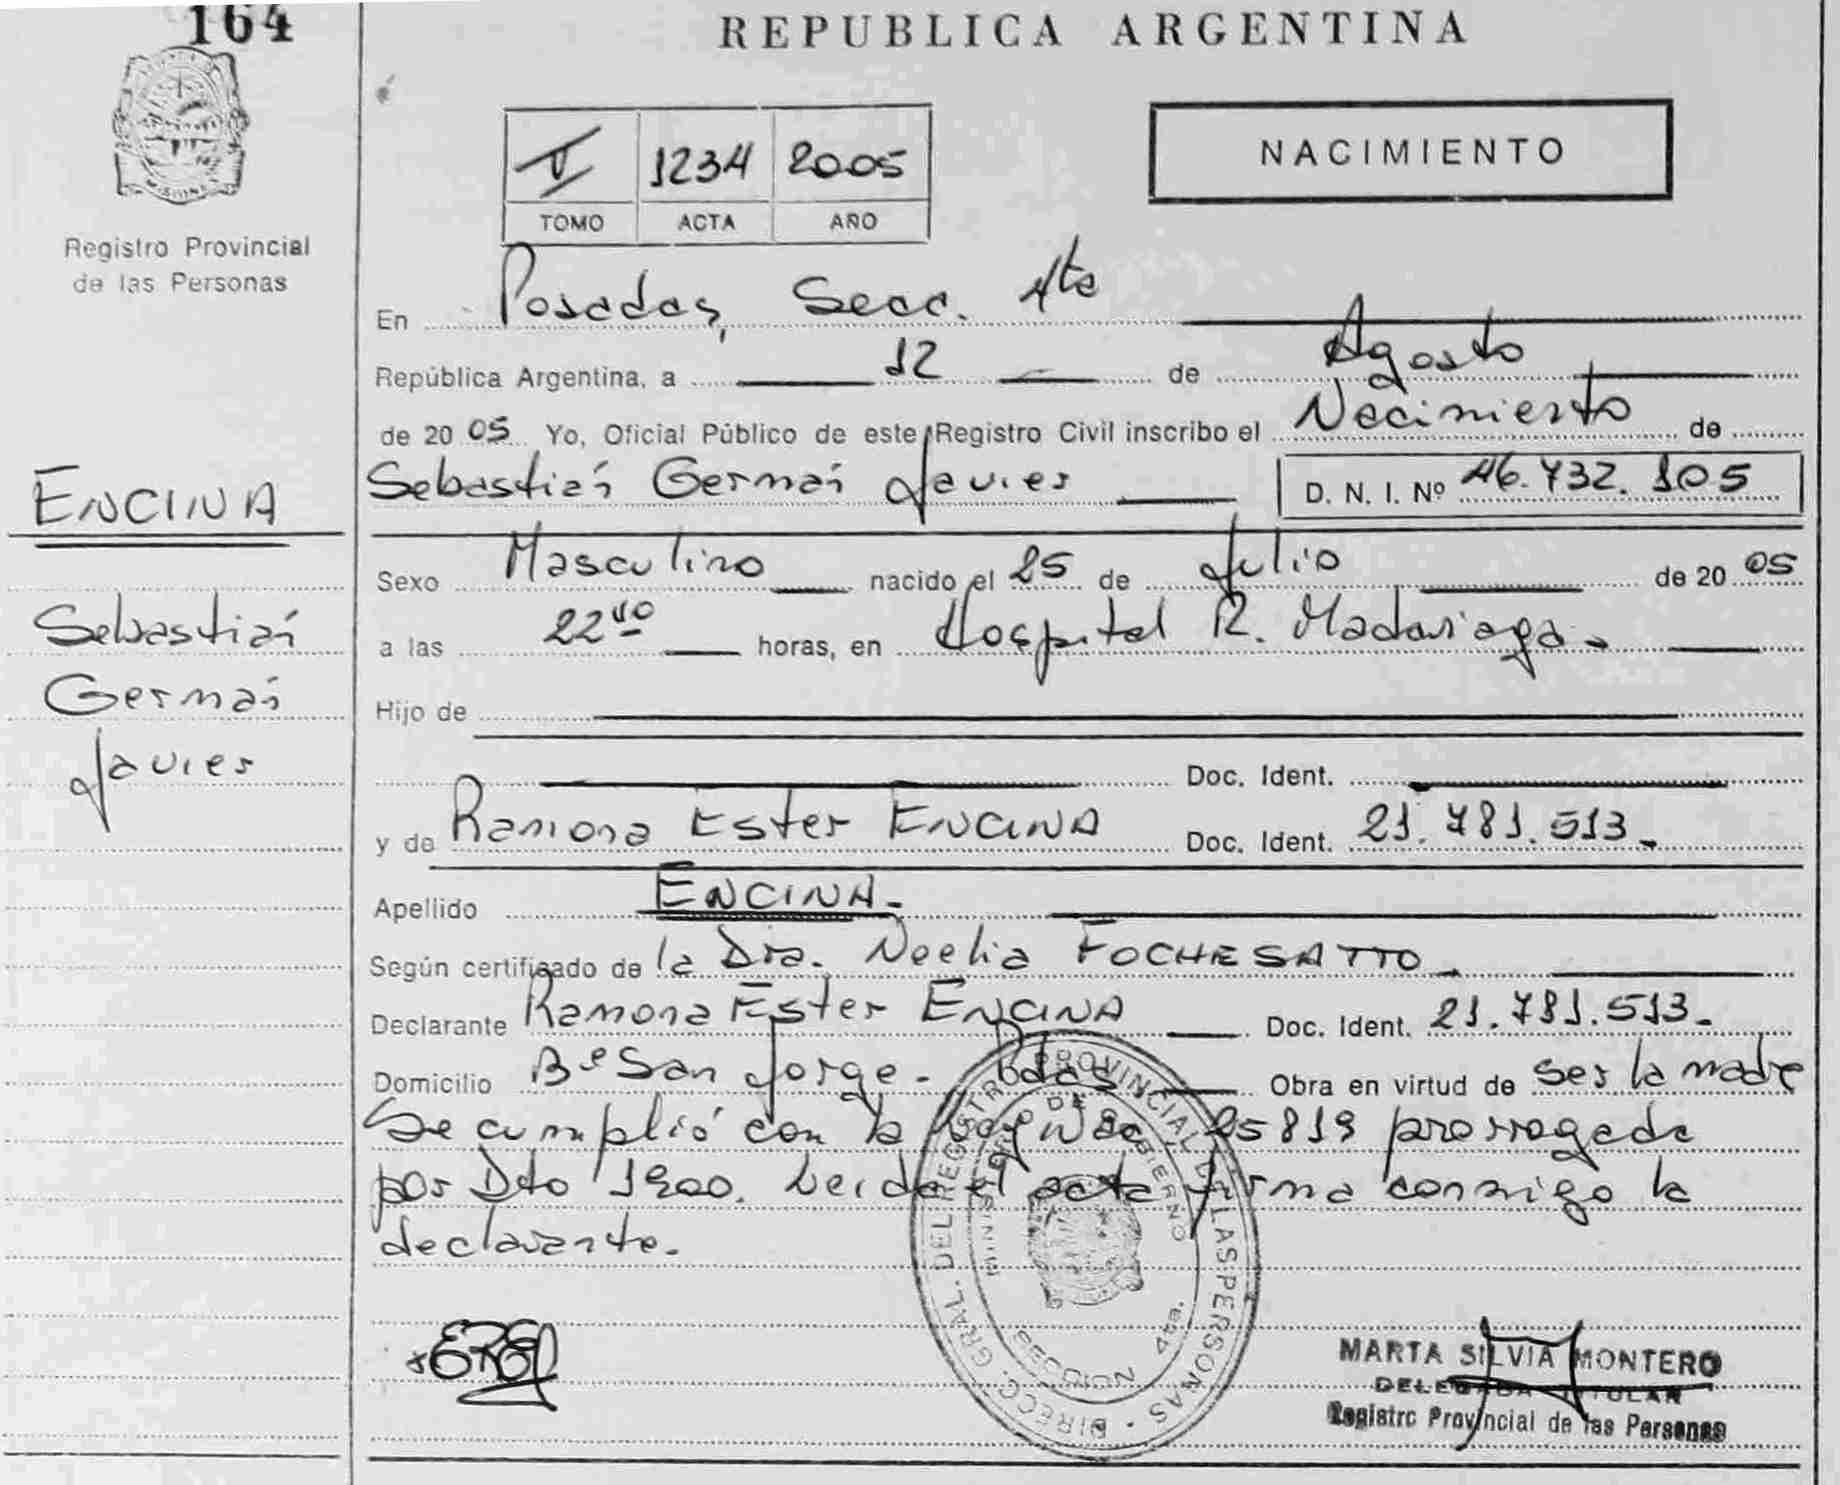 164
REPUBLICA ARGENTINA
MISIONES
Registro Provincial
de las Personas
V 1234 2005
TOMO ACTA AÑO
NACIMIENTO
En Posadas, Secc. 4ta
República Argentina, a 12 de Agosto
de 20 05 Yo, Oficial Público de este Registro Civil inscribo el Nacimiento de
Sebastián Germán Javier D. N. I. Nº 46.732.105
ENCINA
Sebastián
Germán
Javier
Sexo Masculino nacido el 25 de Julio de 20 05
a las 22 horas, en Hospital R. Madariaga.
Hijo de
Doc. Ident.
y de Ramona Ester ENCINA Doc. Ident. 21.781.513.
Apellido ENCINA.
Según certificado de la Dra. Noelia FOCHESATTO.
Declarante Ramona Ester ENCINA Doc. Ident. 21.781.513.
Domicilio Bº San Jorge. Pdas Obra en virtud de ser la madre
Se cumplió con la Ley Nac. 25819 prorrogada
por Dto 1900. Leida el acta firma conmigo la
declarante.
DIRECC. GRAL. DEL REGISTRO PROVINCIAL DE LAS PERSONAS
MINISTERIO DE GOBIERNO
SECCION 4ta.
MARTA SILVIA MONTERO
DELEGADA TITULAR
Registro Provincial de las Personas